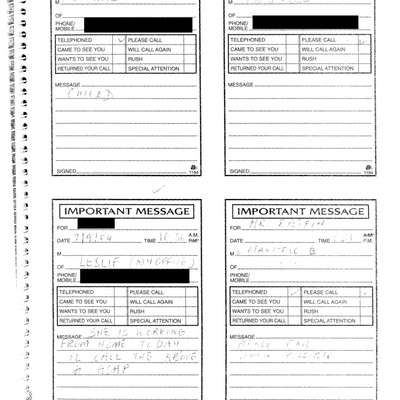 M
OF
PHONE/
MOBILE
TELEPHONED PLEASE CALL
CAME TO SEE YOU WILL CALL AGAIN
WANTS TO SEE YOU RUSH
RETURNED YOUR CALL SPECIAL ATTENTION
MESSAGE
CALLED
SIGNED 1184
M
OF
PHONE/
MOBILE
TELEPHONED PLEASE CALL
CAME TO SEE YOU WILL CALL AGAIN
WANTS TO SEE YOU RUSH
RETURNED YOUR CALL SPECIAL ATTENTION
MESSAGE
SIGNED 1184
IMPORTANT MESSAGE
FOR
DATE 7/9/04 TIME A.M. P.M.
M
OF LESLIE (NY OFFICE)
PHONE/
MOBILE
TELEPHONED PLEASE CALL
CAME TO SEE YOU WILL CALL AGAIN
WANTS TO SEE YOU RUSH
RETURNED YOUR CALL SPECIAL ATTENTION
MESSAGE SHE IS WORKING
FROM HOME TODAY
PL CALL THE ABOVE
# ASAP
IMPORTANT MESSAGE
FOR MR.
DATE TIME A.M. P.M.
M
OF
PHONE/
MOBILE
TELEPHONED PLEASE CALL
CAME TO SEE YOU WILL CALL AGAIN
WANTS TO SEE YOU RUSH
RETURNED YOUR CALL SPECIAL ATTENTION
MESSAGE